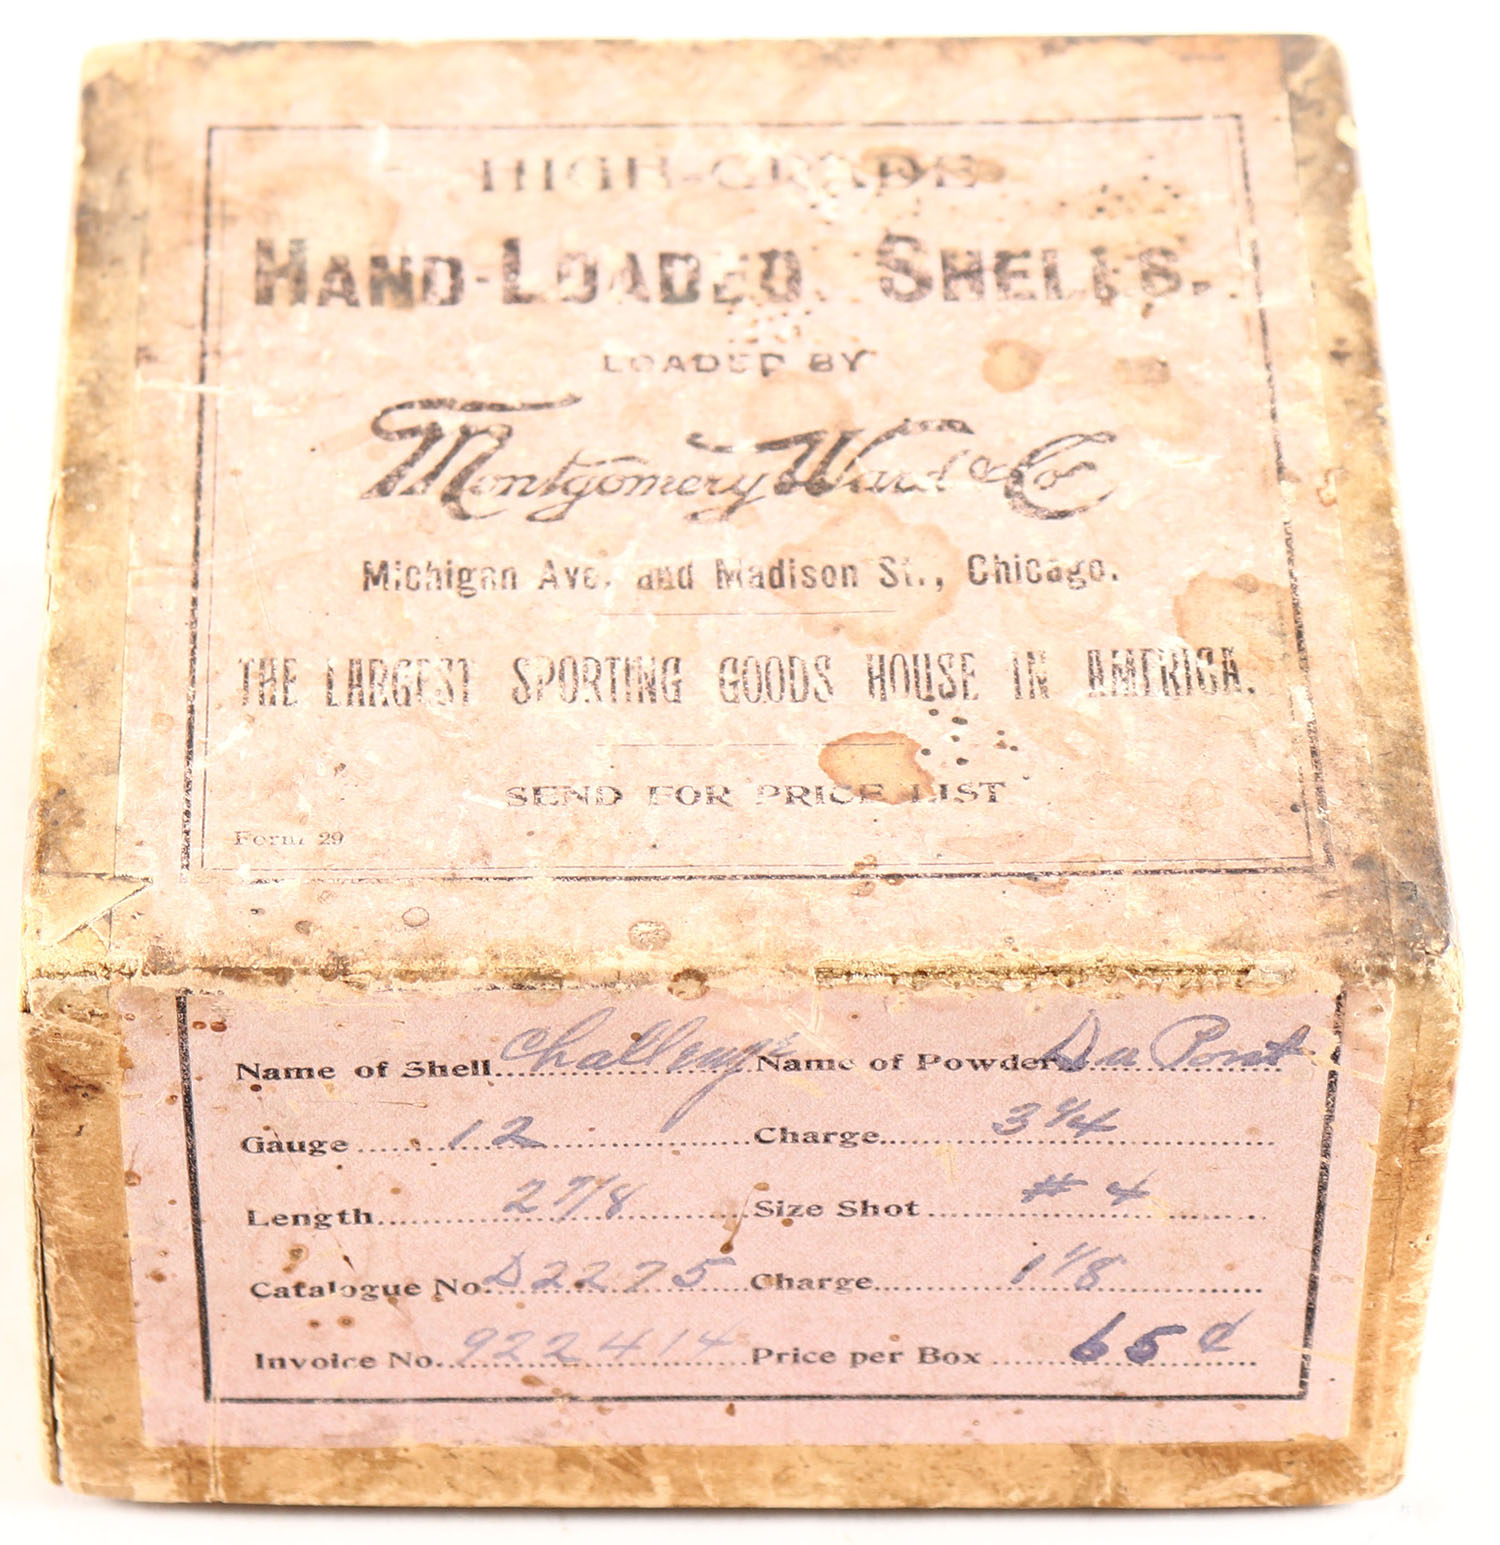 HIGH-GRADE
HAND-LOADED SHELLS.
LOADED BY
Montgomery Ward & Co
Michigan Ave. and Madison St., Chicago.
THE LARGEST SPORTING GOODS HOUSE IN AMERICA.
SEND FOR PRICE LIST
Form 29
Name of Shell Challenge Name of Powder Du Pont
Gauge 12 Charge 3 1/4
Length 2 7/8 Size Shot # 4
Catalogue No. D2275 Charge 1 1/8
Invoice No. 922414 Price per Box 65¢